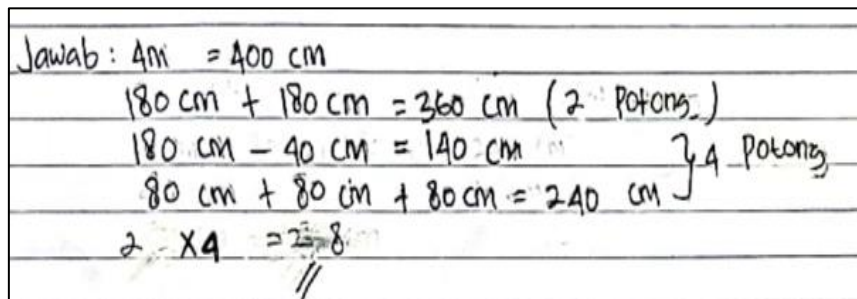 Jawab : 4m = 400 cm
180 cm + 180 cm = 360 cm ( 2 Potong )
180 cm - 40 cm = 140 cm
80 cm + 80 cm + 80 cm = 240 cm } 4 Potong
2 x 4 = 8